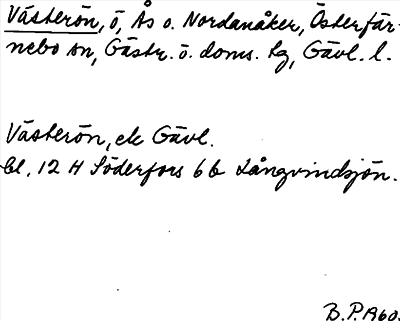 Västerön, ö, Ås o. Nordanåker, Österfär-
nebo sn, Gästr. ö. doms. tg, Gävl. l.
Västerön, ek Gävl.
bl. 12 H Söderfors 6 b Långvindsjön.
B.P. 1960.